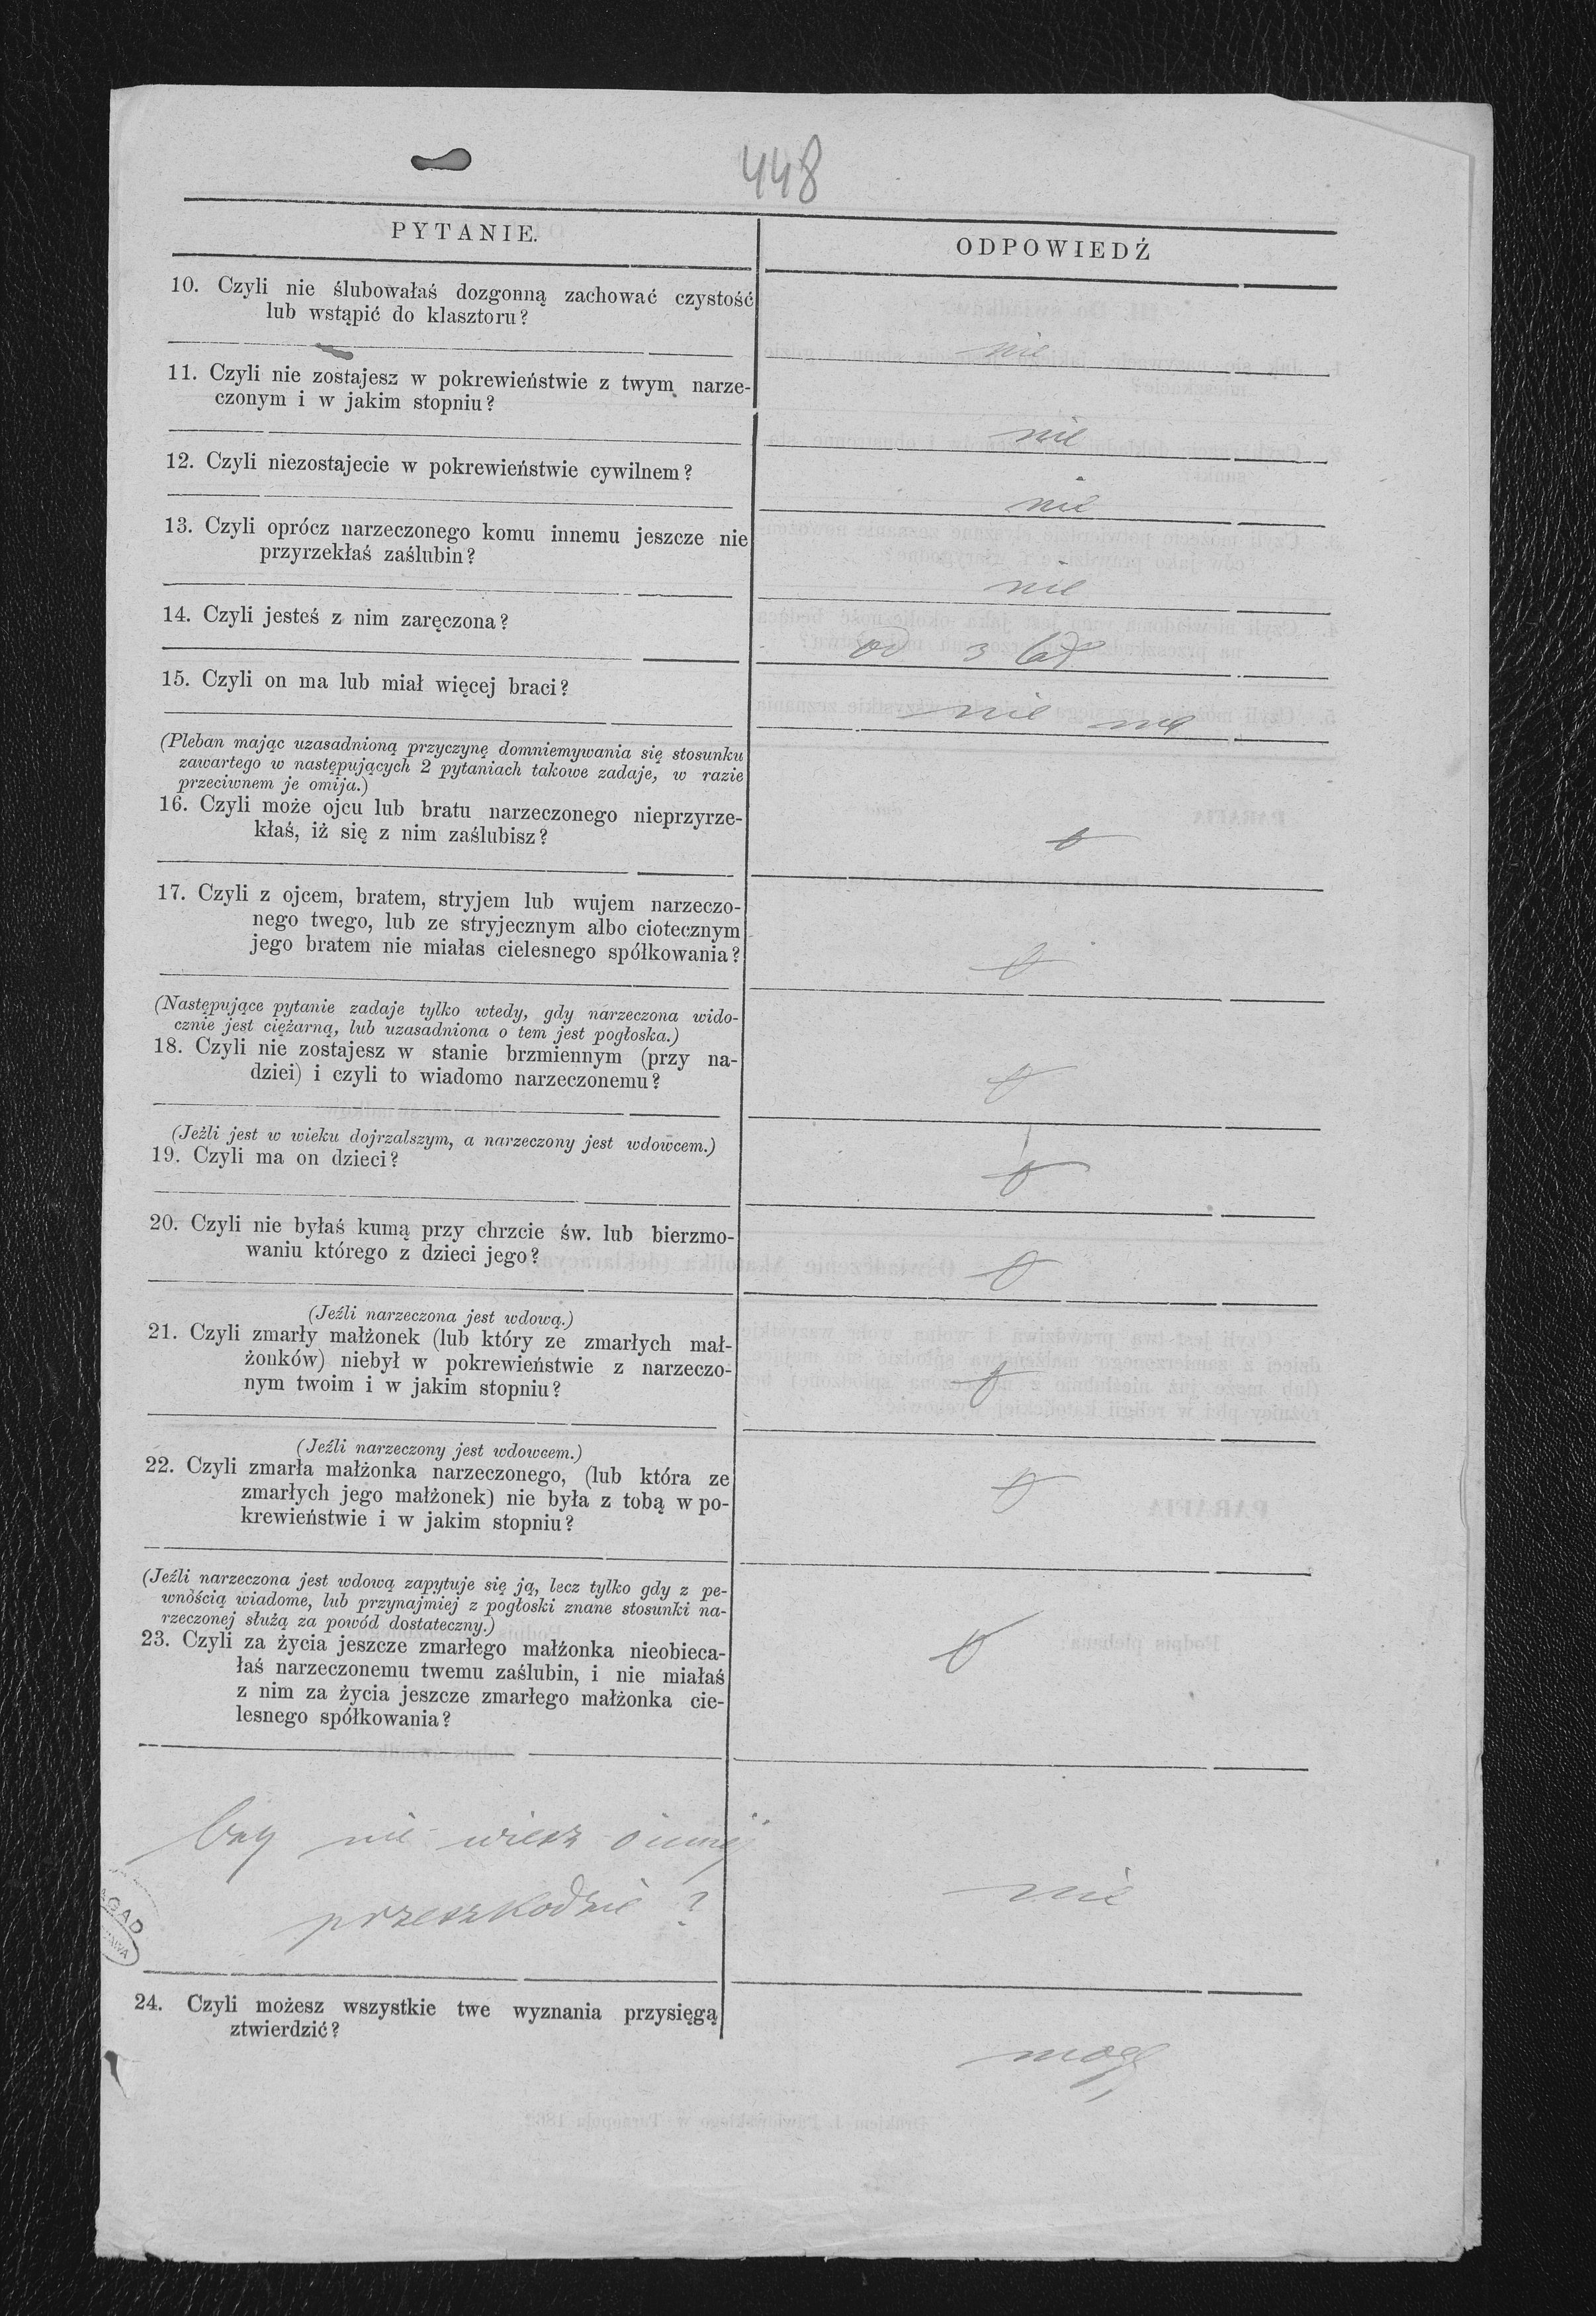 448
PYTANIE.
ODPOWIEDŹ
10. Czyli nie ślubowałaś dozgonną zachować czystość
lub wstąpić do klasztoru?
nie
11. Czyli nie zostajesz w pokrewieństwie z twym narze-
czonym i w jakim stopniu?
nie
12. Czyli niezostajecie w pokrewieństwie cywilnem?
nie
13. Czyli oprócz narzeczonego komu innemu jeszcze nie
przyrzekłaś zaślubin?
nie
14. Czyli jesteś z nim zaręczona?
od 3 lat
15. Czyli on ma lub miał więcej braci?
nie ma
(Pleban mając uzasadnioną przyczynę domniemywania się stosunku
zawartego w następujących 2 pytaniach takowe zadaje, w razie
przeciwnem je omija.)
16. Czyli może ojcu lub bratu narzeczonego nieprzyrze-
kłaś, iż się z nim zaślubisz?
17. Czyli z ojcem, bratem, stryjem lub wujem narzeczo-
nego twego, lub ze stryjecznym albo ciotecznym
jego bratem nie miałas cielesnego spółkowania?
(Następujące pytanie zadaje tylko wtedy, gdy narzeczona wido-
cznie jest ciężarną, lub uzasadniona o tem jest pogłoska.)
18. Czyli nie zostajesz w stanie brzmiennym (przy na-
dziei) i czyli to wiadomo narzeczonemu?
(Jeżli jest w wieku dojrzalszym, a narzeczony jest wdowcem.)
19. Czyli ma on dzieci?
20. Czyli nie byłaś kumą przy chrzcie św. lub bierzmo-
waniu którego z dzieci jego?
(Jeźli narzeczona jest wdową.)
21. Czyli zmarły małżonek (lub który ze zmarłych mał-
żonków) niebył w pokrewieństwie z narzeczo-
nym twoim i w jakim stopniu?
(Jeźli narzeczony jest wdowcem.)
22. Czyli zmarła małżonka narzeczonego, (lub która ze
zmarłych jego małżonek) nie była z tobą w po-
krewieństwie i w jakim stopniu?
(Jeźli narzeczona jest wdową zapytuje się ją, lecz tylko gdy z pe-
wnością wiadome, lub przynajmiej z pogłoski znane stosunki na-
rzeczonej służą za powód dostateczny.)
23. Czyli za życia jeszcze zmarłego małżonka nieobieca-
łaś narzeczonemu twemu zaślubin, i nie miałaś
z nim za życia jeszcze zmarłego małżonka cie-
lesnego spółkowania?
Czy nie wiesz o innej
przeszkodzie?
nie
AGAD
24. Czyli możesz wszystkie twe wyznania przysięgą
ztwierdzić?
mogę